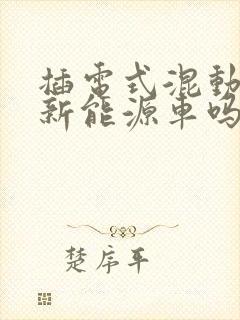 插電式混動
新能源車吗
楚序平